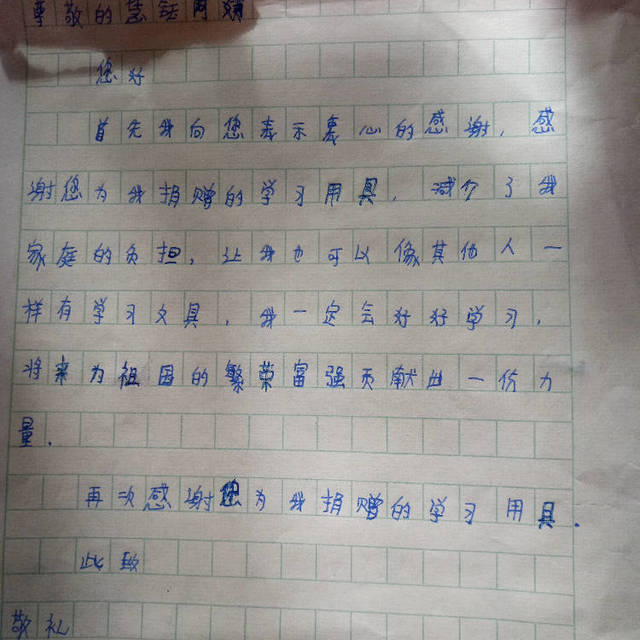 尊敬的慧话同
您好
首先我向您表示衷心的感谢，感
谢您为我捐赠的学习用具，减介了我
家庭的负担，让我也可以像其他人一
样有学习文具，我一定会好好学习，
将来为祖国的繁荣富强贡献出一份力
量．
再次感谢您为我捐赠的学习用具．
此致
敬礼